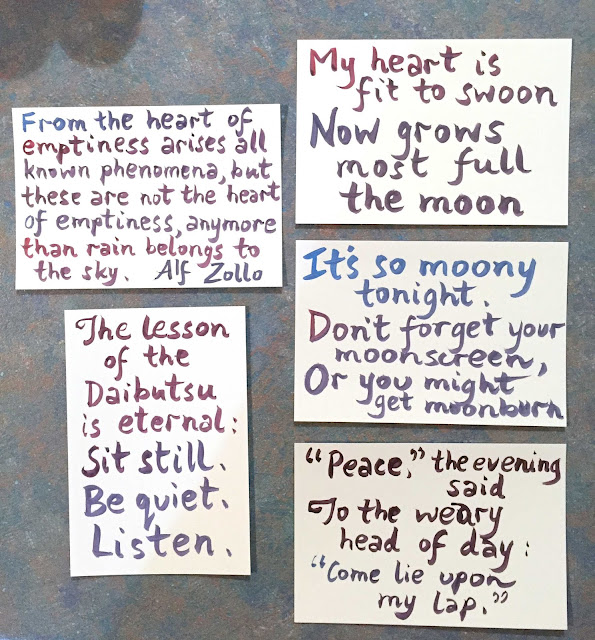 From the heart of
emptiness arises all
known phenomena, but
these are not the heart
of emptiness, anymore
than rain belongs to
the sky. Alf Zollo
The lesson
of the
Daibutsu
is eternal:
Sit still.
Be quiet.
Listen.
My heart is
fit to swoon
Now grows
most full
the moon
It's so moony
tonight.
Don't forget your
moonscreen,
Or you might
get moonburn
"Peace," the evening
said
To the weary
head of day:
"Come lie upon
my lap."